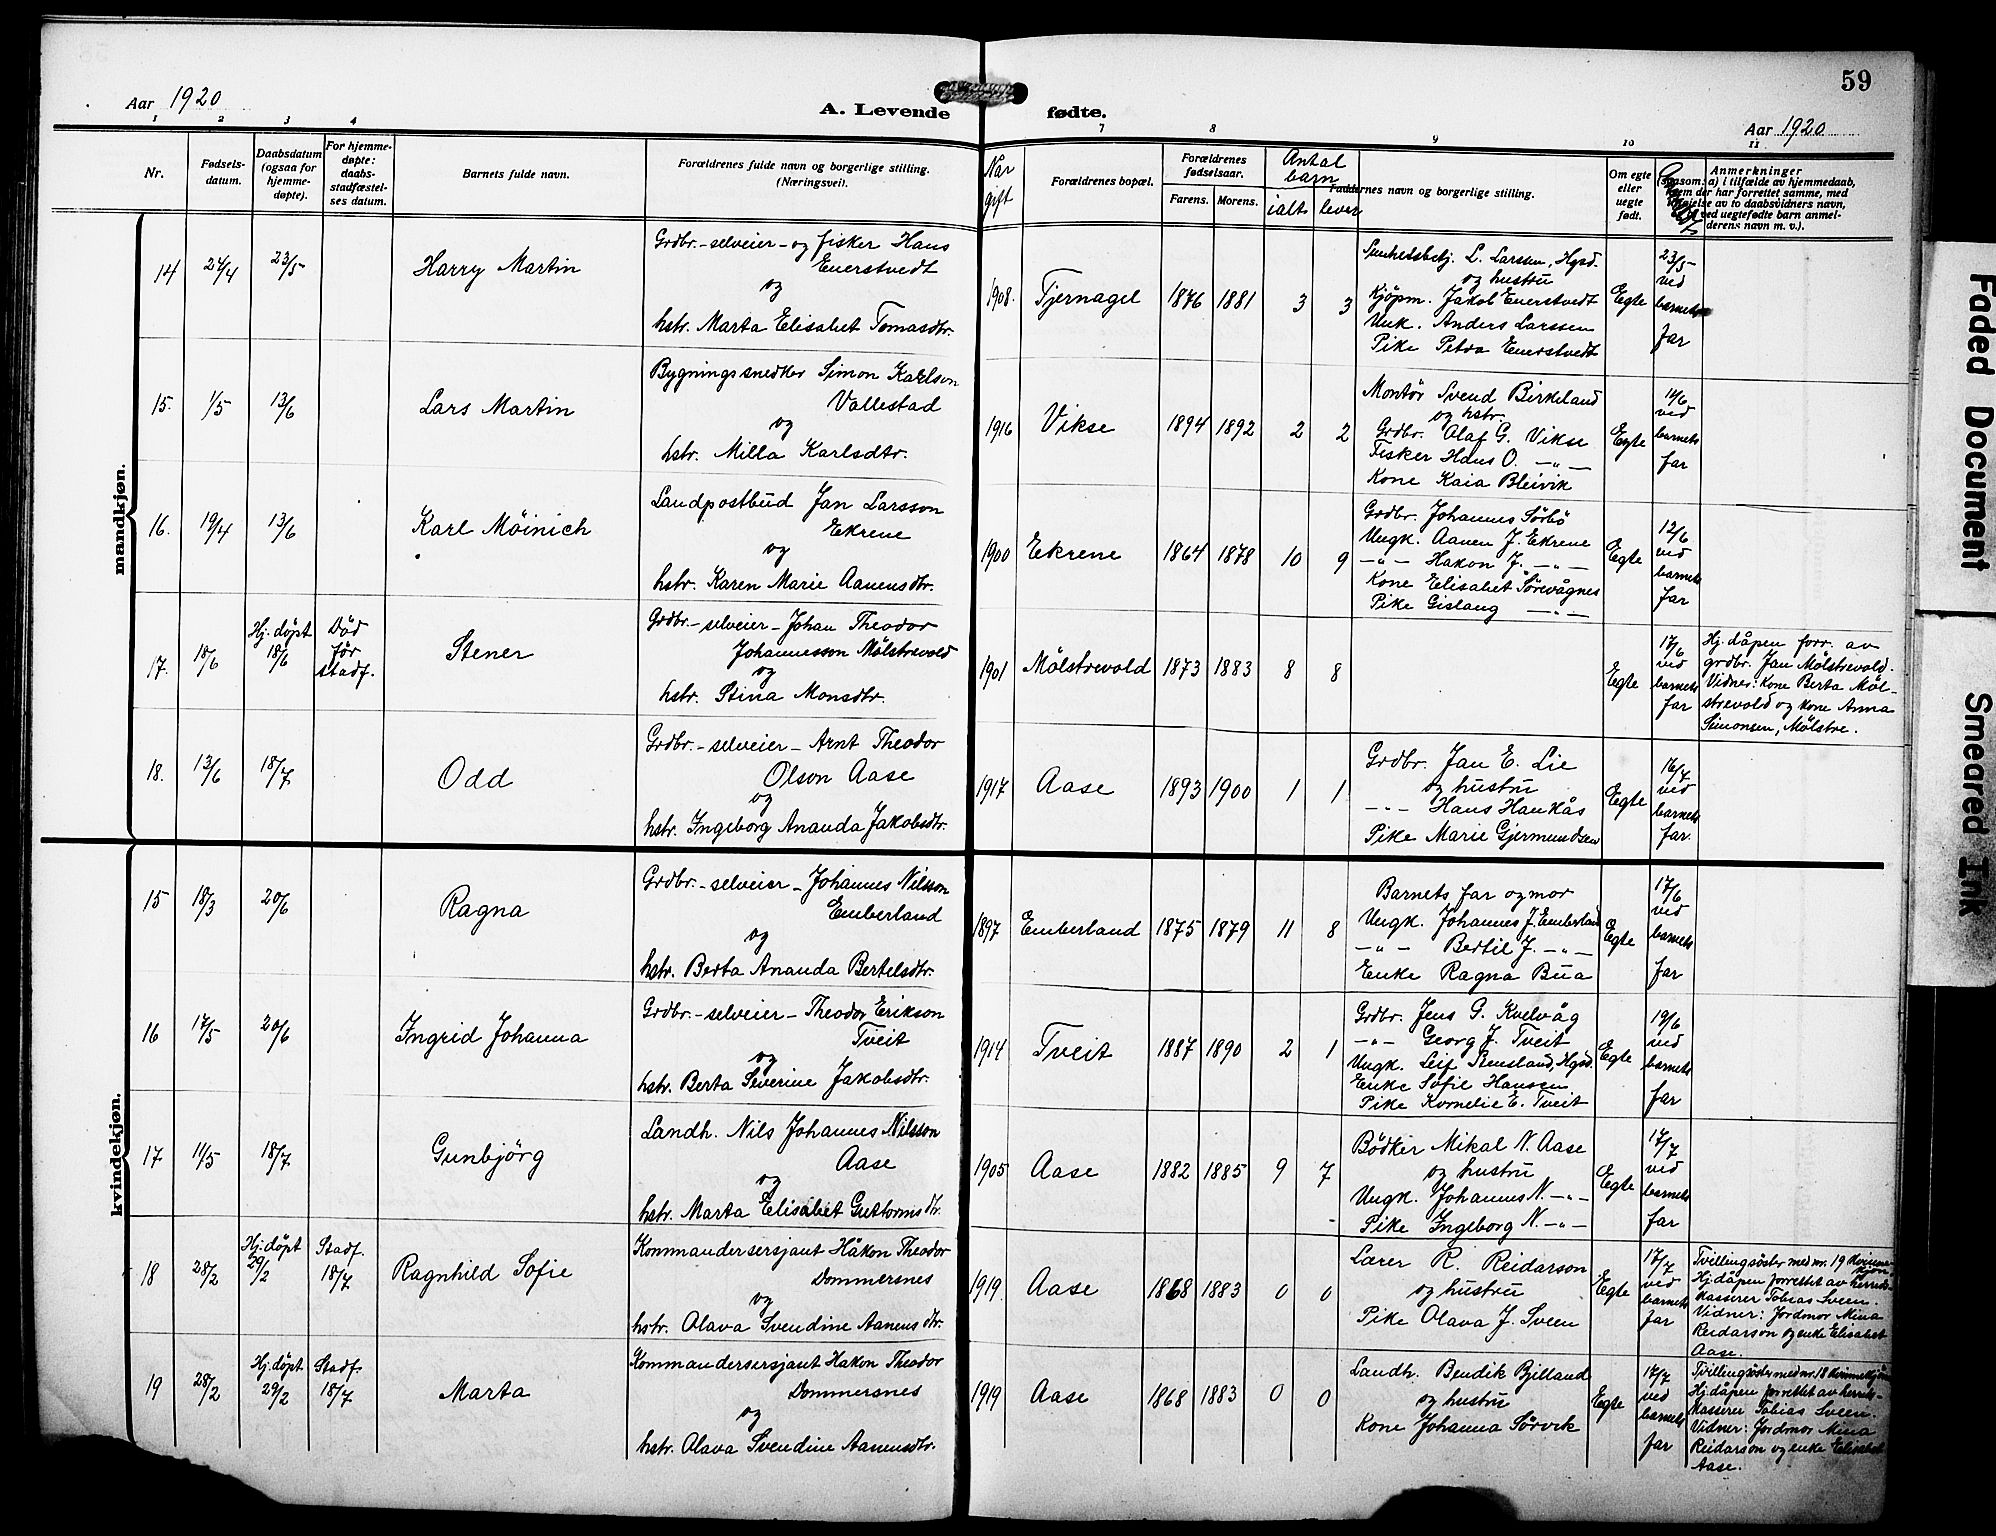 59
Aar 1920
A. Levende fødte.
Aar 1920
1 2 3 4 7 8 9 10 11
Nr.
Fødsels-
datum.
Daabsdatum
(ogsaa for
hjemme-
døpte).
For hjemme-
døpte:
daabs-
stadfæstel-
ses datum.
Barnets fulde navn.
Forældrenes fulde navn og borgerlige stilling.
(Næringsvei).
Nar
gift
Forældrenes bopæl.
Forældrenes
fødselsaar.
Farens. Morens.
Antal
barn
ialt lever
Faddernes navn og borgerlige stilling.
Om egte
eller
uegte
født.
Anmerkninger
(saasom: a) i tilfælde av hjemmedaab,
hvem der har forrettet samme, med
tilføielse av to daabsvidners navn,
b) ved uegtefødte barn anmel-
derens navn m. v.).
mandkjøn.
14 24/4 23/5 Harry Martin
Grdbr.-selveier-og fisker Hans
Enerstvedt
og
hstr. Marta Elisabet Tomasdtr.
1908. Tjernagel 1876 1881 3 3
L. Larssen, Hgsd.
og hustru
Kjøpm. Jakob Enerstvedt
Unk. Anders Larssen
Pike Petra Enerstvedt
Egte
23/5-
ved
barnets
far
15. 1/5 13/6 Lars Martin
Bygningssnedker Simon Karlson
Vallestad
og
hstr. Milla Karlsdtr.
1916 Vikse 1894 1892 2 2
Montör Svend Birkeland
og hstr.
Grdbr. Olaf G. Vikse
Fisker Hans O. -"-
Kone Kaia Bleivik
Egte
14/6
ved
barnets
far
16. 19/4 13/6 Karl Möinich
Landpostbud Jan Larsson
Ekrene
og
hstr. Karen Marie Aanensdtr.
1900 Ekrene 1864 1878 10 9
Grdbr. Johannes Sörbö
Ungk. Aanen J. Ekrene
-"- Hakon J. -"-
Kone Elisabet Sörevågnes
Pike Gislaug -"-
Egte
12/6
ved
barnets
far
17. 18/6
Hj. döpt
18/6
Död
för
stadf.
Stener
Grdbr.-selveier-Johan Theodor
Johannesson Mölstrevold
og
hstr. Stina Monsdtr.
1901 Mölstrevold 1873 1883 8 8
Egte
17/6
ved
barnets
far
Hj. dåpen forr. av
grdbr. Jan Mölstrevold.
Vidner: Kone Berta Möl-
strevold og kone Anna
Simonsen, Mölstre.
18. 13/6 18/7 Odd
Grdbr.-selveier-Arnt Theodor
Olson Aase
og
hstr. Ingeborg Ananda Jakobsdtr.
1917 Aase 1893 1900 1 1
Grdbr. Jan E. Lie
og hustru
-"- Hans Haukås
Pike Marie Gjermundsen
Egte
16/7
ved
barnets
far.
kvindekjøn.
15 18/3 20/6 Ragna
Grdbr.-selveier-Johannes Nilsson
Emberland
og
hstr. Berta Ananda Bertelsdtr.
1897 Emberland 1875 1879 11 8
Barnets far og mor
Ungk. Johannes J. Emberland
-"- Bertil J. -"-
Enke Ragna Bua
Egte
17/6
ved
barnets
far
16 17/5 20/6 Ingrid Johanna
Grdbr.-selveier-Theodor Erikson
Tveit
og
hstr. Berta Severine Jakobsdtr.
1914 Tveit 1887 1890 2 1
Grdbr. Jens G. Kvelvåg
-"- Georg J. Tveit
Ungk. Leif Hgsd.
Enke Sofie Hansen
Pike Kornelie E. Tveit
Egte
19/6
ved
barnets
far
17 11/5 18/7 Gunbjörg
Landh. Nils Johannes Nilsson
Aase
og
hstr. Marta Elisabet Guttormsdtr.
1905 Aase 1882 1885 9 7
Bödker Mikal N. Aase
og hustru
Ungk. Johannes N. -"-
Pike Ingeborg N. -"-
Egte
17/7
ved
barnets
far
18 28/2
Hj. döpt
29/2
Stadf.
18/7
Ragnhild Sofie
Kommandersersjant Håkon Theodor
Dommersnes
og
hstr. Olava Svendine Aanensdtr.
1919. Aase 1868 1883 0 0
Lærer R. Reidarson
og hustru
Pike Olava J. Sveen
Egte
17/7
ved
barnets
far
Tvillingsöster med nr. 19 kvinne-
kjön.
Hj. dåpen forrettet av herreds-
kasserer Tobias Sveen.
Vidner: Jordmor Mina
Reidarson og enke Elisabet
Aase.
19 28/2
Hj. döpt
29/2
Stadf.
18/7
Marta
Kommandersersjant Hakon Theodor
Dommersnes
og
hstr. Olava Svendine Aanensdtr.
1919 Aase 1868 1883 0 0
Landh. Bendik Bjelland
og hustru
Kone Johanna Sörvik
Egte
17/7
ved
barnets
far
Tvillingsöster med nr. 18 kvinnekjön
Hj. dåpen forrettet av herreds-
kasserer Tobias Sveen.
Vidner: Jordmor Mina
Reidarson og enke Elisabet
Aase.
Faded Document
Smeared Ink